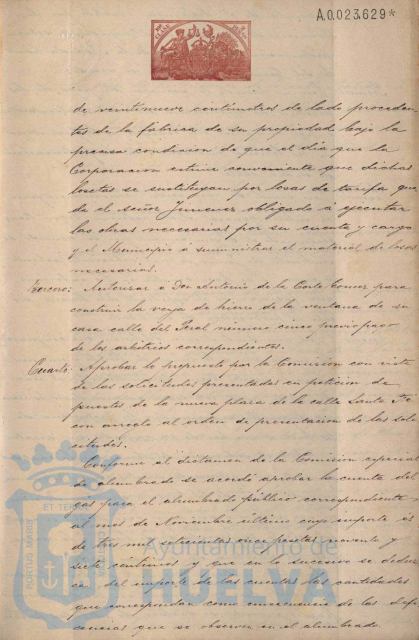 A.0.023.629*
de veintinueve centímetros de lado proceden-
tes de la fábrica de su propiedad bajo la
precisa condicion de que el dia que la
Corporacion estime conveniente que dichas
losetas se sustituyan por losas de tarifa que
de el señor Jimenez obligado á ejecutar
las obras necesarias por su cuenta y cargo
y el Municipio á suministrar el material de losas
necesarias.
Tercero: Autorizar á Don Antonio de la Corte Gomez para
construir la reja de hierro de la ventana de su
casa calle del Peral número cinco previo pago
de los arbitrios correspondientes.
Cuarto: Aprobar lo propuesto por la Comision con vista
de las solicitudes presentadas en peticion de
puestos de la nueva plaza de la calle Santa Fe
con arreglo al orden de presentacion de las soli
citudes.
Conforme al dictamen de la Comision especial
de alumbrado se acordó aprobar la cuenta del
gas para el alumbrado público correspondiente
al mes de Noviembre último cuyo importe es
de tres mil setecientas once pesetas noventa y
siete céntimos y que en lo sucesivo se deduz
ca del importe de las cuentas las cantidades
que correspondan como consecuencia de las defi
ciencias que se observen en el alumbrado.
Ayuntamiento de
HUELVA
PORTUS MARIS
ET TERRAE